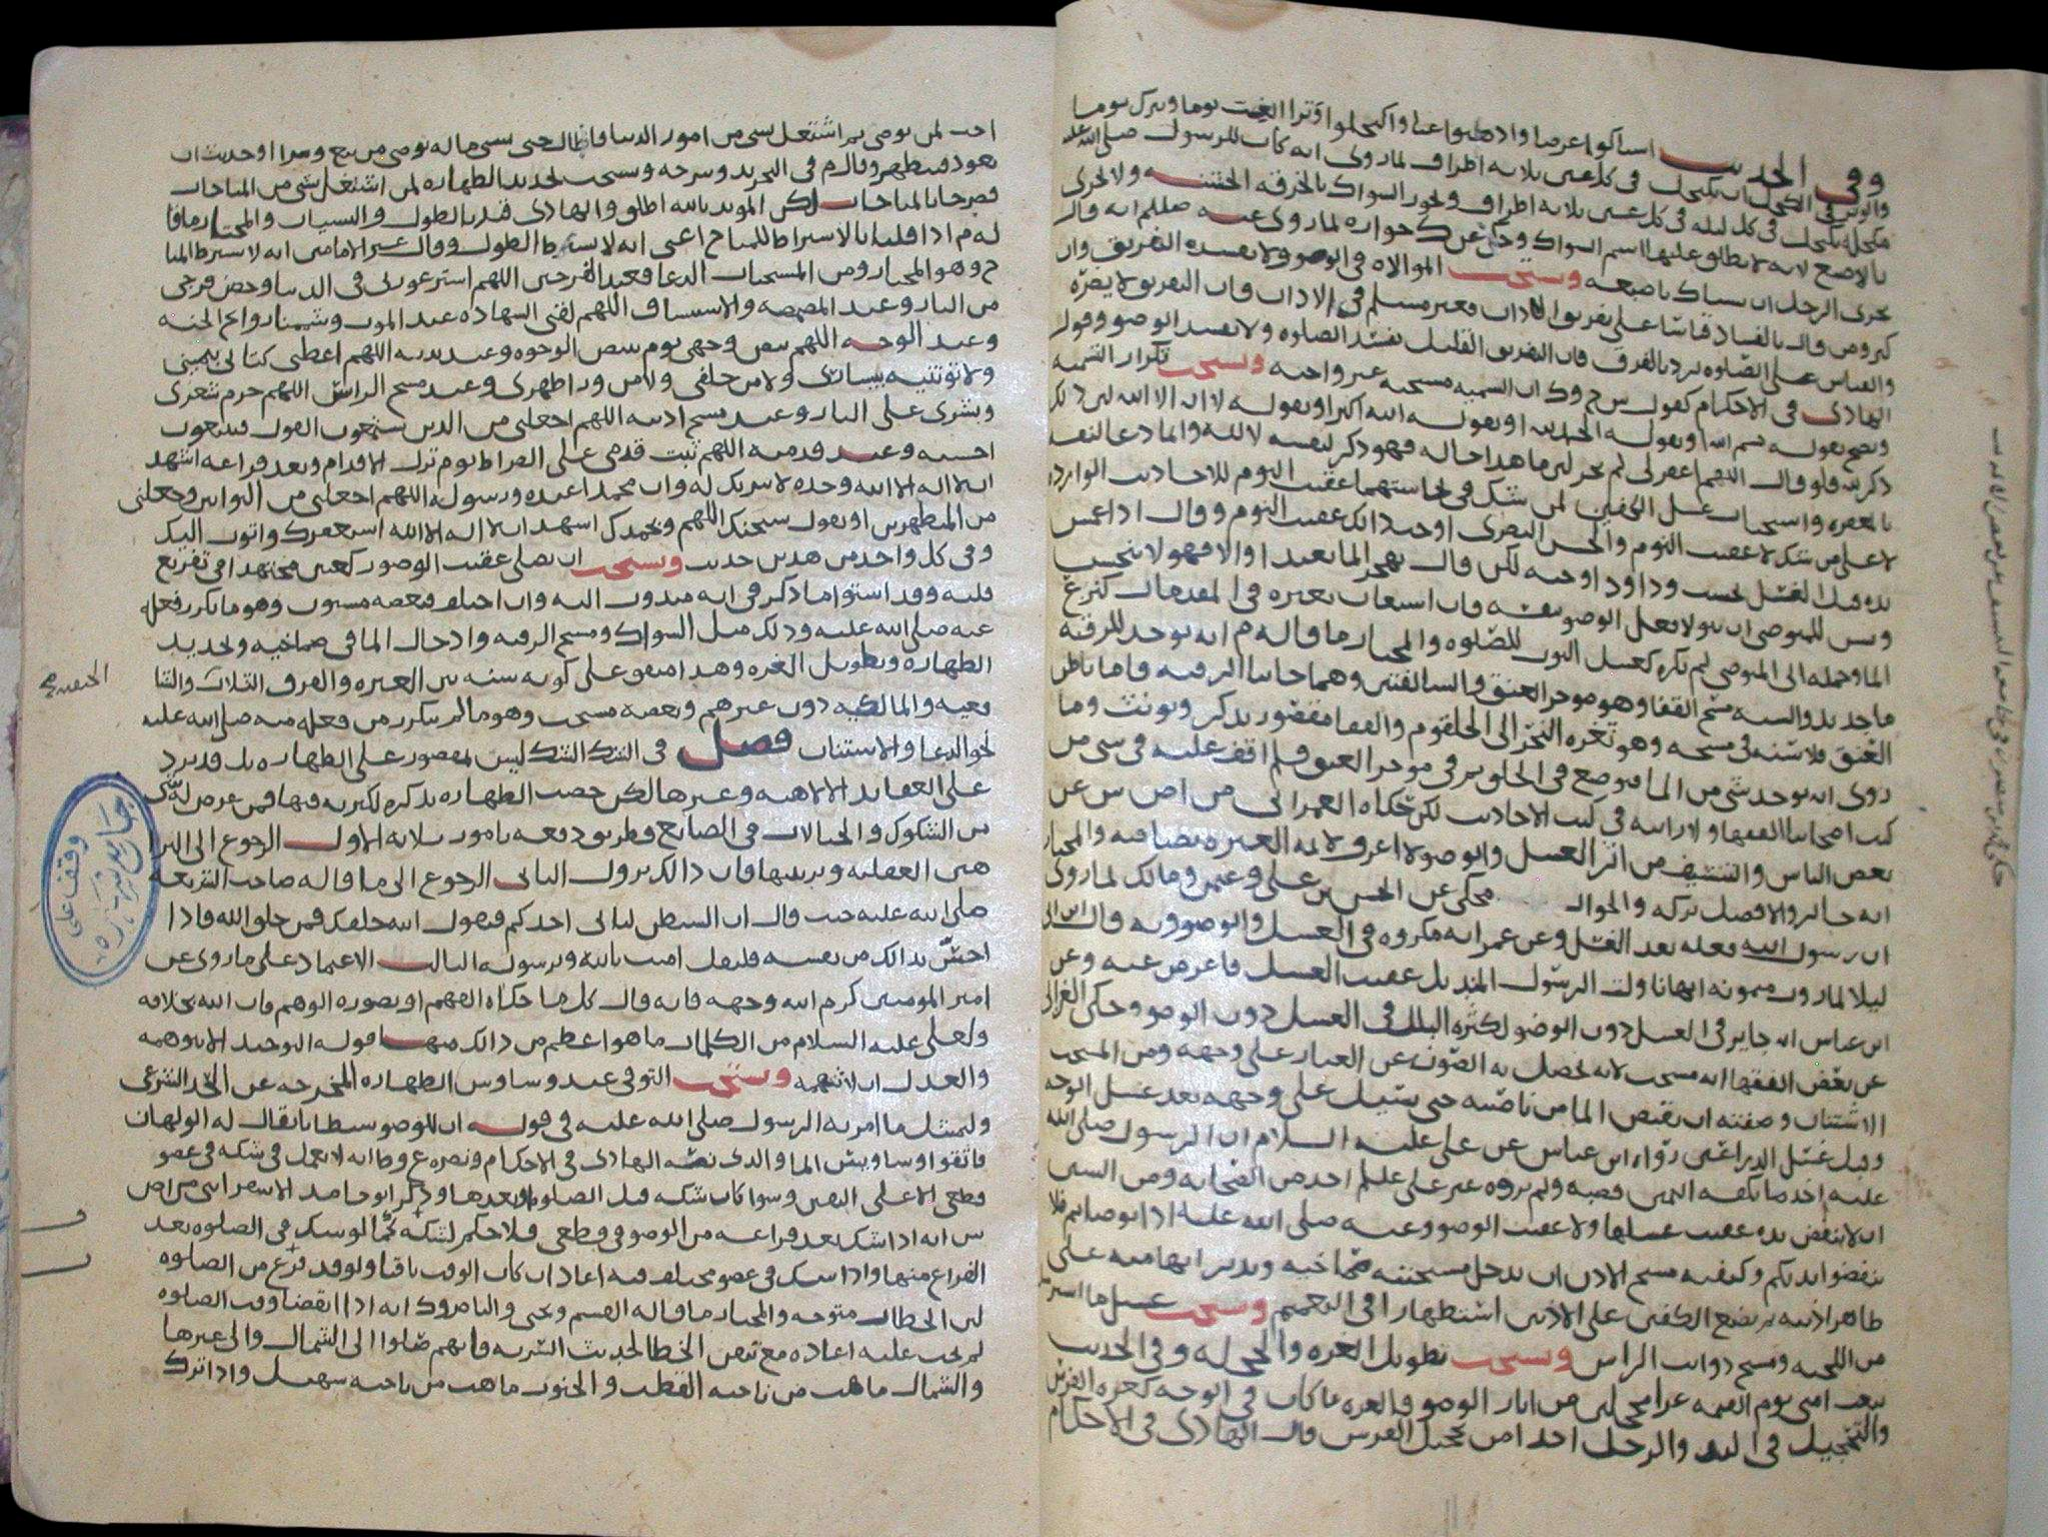 وفي الحديث استاكوا عرضا وادهنوا غبا واكتحلوا وترا الغب يوما ويترك يوما
والوتر في الكحل ان يكتحل في كل عين ثلاثة اطراف لما روي انه كان للرسول صلى الله عليه
مكحلة يكتحل في كل ليلة في كل عين ثلاثة اطراف ولا يجزي السواك بالخرقة الخشنة ولا يجزي
بالاصبع لانه لا يطلق عليها اسم السواك وحكي عن ك جوازه لما روي عنه صللم انه قال
يجزي الرجل ان يستاك باصبعه ويستحب الموالاة في الوضوء ولا يفسده التفريق وان
كبر ومن قال بالفساد قاسا على تفريق الاذان فغير مسلم في الاذان فان التفريق لا يضره
والقياس على الصلاة يرد بالفرق فان التفريق القليل يفسد الصلاة ولا يفسد الوضوء وقول
الهادي في الاحكام كقول ش ح وك ان التسمية مستحبة غير واجبة ويستحب تكرار التسمية
ويصح بقوله بسم الله او بقوله الحمد لله او بقوله الله اكبر او بقوله لا اله الا الله لان ذلك
ذكر لله فلو قال اللهم اغفر لي لم يجز لان ما هذا حاله فهو ذكر لنفسه لا لله وانما دعا لنفسه
بالمغفرة واستحباب غسل الكفين لمن شك في نجاستهما عقيب النوم للاحاديث الواردة
لا على من شك لا عقيب النوم والحسن البصري اوجب ذلك عقيب النوم وقال اذا غمس
يده قبل الغسل نجست وداود اوجبه لكن قال يهجر الماء تعبدا والا فهو لا ينجس
ويسن للمتوضي ان يتولى فعل الوضوء بنفسه فان استعان بغيره في المقدمات كنزع
الماء وحمله الى المتوضي لم يكره كغسل الثوب للصلاة والمختار ما قاله م انه يوخذ للرقبة
ماء جديد والسنة مسح القفا وهو موخر العنق والسالفتين وهما جانبا الرقبة فاما باطن
العنق فلا سنة في مسحه وهو ثغرة النحر الى الحلقوم والقفا مقصور يذكر ويونث وما
روي انه يوخذ شي من الماء فيوضع في الحلق ثم في موخر العنق فلم اقف عليه في شي من
كتب اصحابنا الفقهاء ولا رايته في كتب الاحاديث لكن حكاه العمراني من اص ش عن
بعض الناس والتنشيف من اثر الغسل والوضوء
انه جائز والافضل تركه والموال محكي عن الحسن بن علي وعثمن ومالك لما روي
ان رسول الله فعله بعد الغسل وعن عمر انه مكروه في الغسل والوضوء وبه قال ابن ابي
ليلا لما روت ميمونة انها ناولت الرسول المنديل عقيب الغسل فاعرض عنه وعن
ابن عباس انه جايز في الغسل دون الوضو لكثرة البلل في الغسل دون الوضوء وحكى الغزالي
عن بعض الفقها انه مستحب لانه يحصل به الصون عن الغبار على وجهه ومن المستحب
الاشتنان وصفته ان يفيض الماء من ناصيته حتى يسيل على وجهه بعد غسل الوجه
وقبل غسل الذراعين رواه ابن عباس عن علي عليه السلام ان الرسول صلى الله
عليه اخذ ماء بكفه اليمين فصبه ولم يروه غير علي علم احد من الصحابة ومن السنن
ان لا ينفض يده عقيب غسلها ولا عقيب الوضو وعنه صلى الله عليه اذا توضاتم فلا
تنفضوا ايديكم وكيفية مسح الاذن ان يدخل مسبحتيه صماخيه ويدير ابهاميه على
ظاهر اذنيه ثم يضع الكفين على الاذنين استظهارا في التعميم ويستحب غسل ما استرسل
من اللحية ومسح ذوايب الراس ويستحب تطويل الغرة والتحجيل له وفي الحديث
تبعث امتي يوم القيمة غرا محجلين من اثار الوضوء فالغرة ما كان في الوجه كغرة الفرس
والتحجيل في اليد والرجل اخذا من تحجيل الفرس قال الهادي في الاحكام
احب لمن توضى ثم اشتغل بشي من امور الدنيا فاطال حتى نسي ما له توضى من بيع وشرا او حديث ان
يعود فيتطهر وقال م في التجريد وشرحه ويستحب تجديد الطهارة لمن اشتغل بشي من المباحات
فصرحا بالمباحات لكن المويد بالله اطلق والهادي قيد بالطول والنسيان والمختار ما قا
له م اذا قلنا بالاشتراط للمباح اعني انه لا يشترط الطول وقال غير الامامين انه لا يشترط المبا
ح وهو المختار ومن المستحبات الدعا فعند الفرجين اللهم استر عورتي في الدنيا وحصن فرجي
من النار وعند المضمضة والاستنشاق اللهم لقني الشهادة عند الموت وشممنا روايح الجنة
وعند الوجه اللهم بيض وجهي يوم تبيض الوجوه وعند يديه اللهم اعطني كتابي بيميني
ولا توتنيه بيساري ولا من خلفي ولا من ورا ظهري وعند مسح الراس اللهم حرم شعري
وبشري على النار وعند مسح اذنيه اللهم اجعلني من الذين يستمعون القول فيتبعون
احسنه وعند قدميه اللهم ثبت قدمي على الصراط يوم تزل الاقدام وبعد فراغه اشهد
ان لا اله الا الله وحده لا شريك له وان محمدا عبده ورسوله اللهم اجعلني من التوابين واجعلني
من المتطهرين او يقول سبحنك اللهم وبحمدك اشهد ان لا اله الا الله استغفرك واتوب اليك
وفي كل واحد من هذين حديث ويستحب ان يصلي عقيب الوضو ركعتين مجتهدا في تفريغ
قلبه وقد استوا ما ذكر في انه مندوب اليه وان اختلف فبعضه مسنون وهو ما تكرر فعله
عنه صلى الله عليه وذلك مثل السواك ومسح الرقبة وادخال الماء في صماخيه وتجديد
الطهارة وتطويل الغرة وهذا متفق على كونه سنة بين العترة والفرق الثلاث والشا
فعية والمالكية دون غيرهم وبعضه مستحب وهو ما لم يتكرر من فعله منه صلى الله عليه
نحو الدعا والاستنان فصل في الشك الشك ليس بمقصور على الطهارة بل قد يرد
على العقايد الالهية وغيرها لكن خصت الطهارة بذكره لكثرته فيها فمن عرض له شي
من الشكوك والخيالات في الصانع فطريق دفعه بامور ثلاثة الاول الرجوع الى البرا
هين العقلية وترتيبها فان ذلك يزول الثاني الرجوع الى ما قاله صاحب الشريعة
صلى الله عليه حيث قال ان الشيطن لياتي احدكم فيقول الله خلقك فمن خلق الله فاذا
احس بذلك من نفسه فليقل امنت بالله وبرسوله الثالث الاعتماد على ما روي عن
امير المومنين كرم الله وجهه فانه قال كل ما حكاه الفهم او تصوره الوهم فان الله بخلافه
ولعلي عليه السلام من الكلمات ما هو اعظم من ذلك منها قوله التوحيد الا تتوهمه
والعدل ان لا تتهمه ويستحب التوقي عند وساوس الطهارة المخرجة عن الحد الشرعي
وليمتثل ما امر به الرسول صلى الله عليه في قوله ان للوضو شيطانا يقال له الولهان
فاتقوا وساوس الماء والذي نصه الهادي في الاحكام ونصره ع وط انه لا يعمل في شكه في عضو
قطعي الا على اليقين وسوا كان شكه قبل الصلاة او بعدها وذكر ابو حامد الاسفرايني من اص
ش انه اذا شك بعد فراغه من الوضو في قطعي فلا حكم لشكه كما لو شك في الصلاة بعد
الفراغ منها واذا شك في عضو مختلف فيه اعاد ان كان الوقت باقيا ولو قد فرغ من الصلاة
لان الخطاب متوجه والمختار ما قاله القسم ويحيى والناصر وك انه اذا انقضا وقت الصلاة
لم يجب عليه اعادة مع تيقن الخطا لحديث السرية فانهم صلوا الى الشمال والى غيرها
والشمال ما هب من ناحية القطب والجنوب ما هب من ناحية سهيل واذا ترك
وقف على